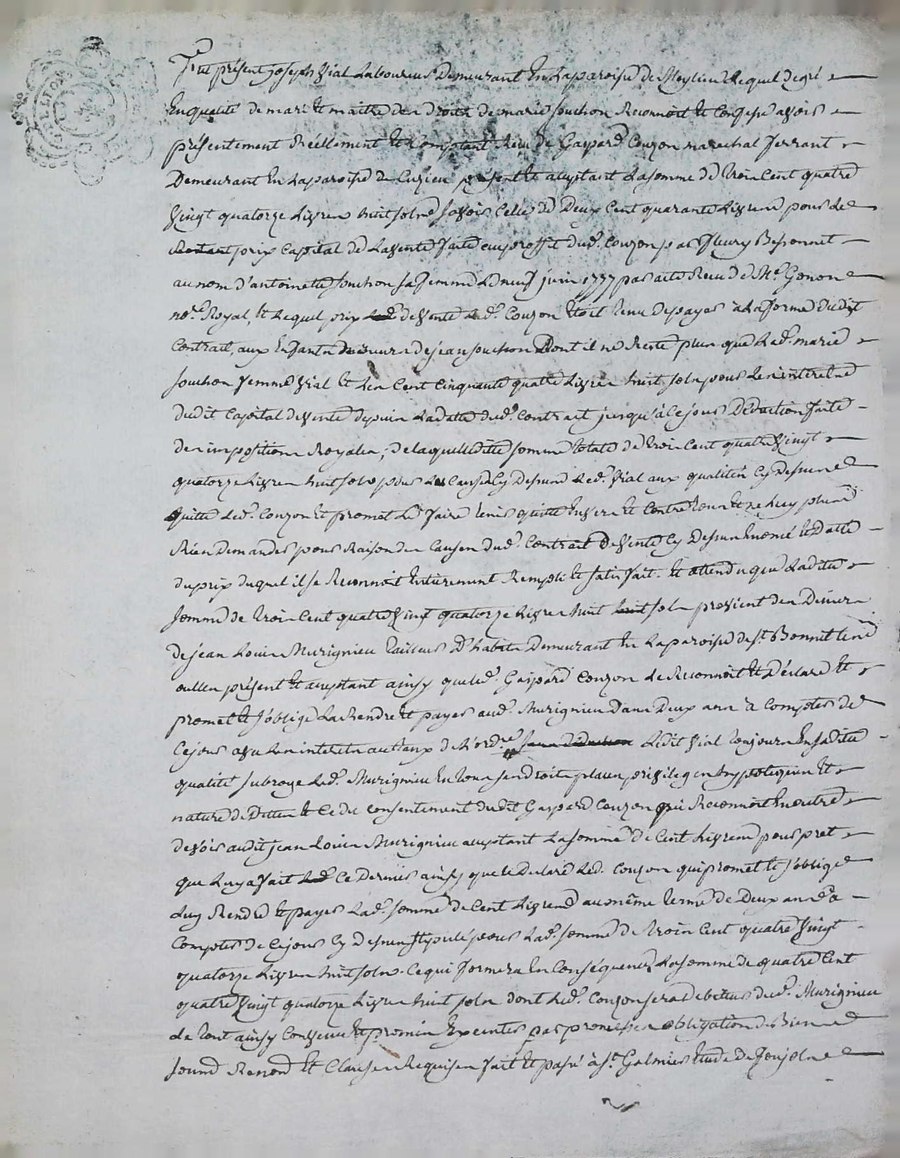 Fut présent joseph Vial Laboureur Demeurant En La paroisse de Meylieu Lequel de gré
En qualité de mari et maitre des droits de marie souchon Reconnoit et Confesse avoir
présentement Réellement et Comptant Reçu de Gaspard Couzon marechal ferrant
Demeurant En La paroisse de Cuzieu présent et acceptant La somme de trois Cent quatre
Vingt quatorze Livres huit sols savoir Celle de Deux Cent quarante Livres pour Le
prix Capital de La vente faite au proffit dud. Couzon par fleury Bessonnet
au nom d'antoinette souchon sa femme Le neuf juin 1777 par acte Recu de Me. Genon
nore. Royal, et Lequel prix de vente Led. Couzon étoit tenu de payer à La forme dudit
Contrat, aux Enfants de jean souchon Dont il ne Reste plus que Lad. marie
souchon femme Vial et Les Cent Cinquante quatre Livres huit sols pour Les interets
dudit Capital de vente depuis La datte dud. Contrat jusqu'à Ce jour Déduction faite
des impositions Royales, de laquelle ditte somme totale de trois Cent quatre Vingt
quatorze Livres huit sols pour Les Causes Cy Dessus Led. Vial aux qualités Cy Dessus
quitte Led. Couzon et promet Le faire tenir quitte Envers et Contre tous et ne Luy plus
Rien Demander pour Raison des Causes dud. Contrat De vente Cy Dessus Enoncé et Datté
du prix duquel il se Reconnoit Entierement Rempli et satisfait. Et attendu que Ladite
somme de trois Cent quatre Vingt quatorze Livres huit sols provient des Deniers
de jean Louis Murignieu tailleur D'habits Demeurant En La paroisse de St. Bonnet Les
oulles présent et acceptant ainsy que led. Gaspard Couzon Le Reconnoit et Déclare et
promet et s'oblige La Rendre et payer aud. Murignieu Dans Deux ans à Compter de
Ce jour avec Les interets au taux de L'ordre. Ledit Vial toujours En sadite
qualité subroge Led. Murignieu En tous ses droits places privileges hypotheques et
nature de Dettes et Ce du consentement dudit Gaspard Couzon qui Reconnoit En outre
devoir audit jean Louis Murignieu acceptant La somme de Cent Livres pour pret
que Luy a fait Ce Dernier ainsy que le Declare Led. Couzon qui promet et s'oblige
Luy Rendre et payer Lad. somme de Cent Livres au même terme de Deux années à
Compter de Ce jour Cy Dessus stipulé pour Lad. somme de trois Cent quatre Vingt
quatorze Livres huit sols. Ce qui formera En Conséquence La somme de quatre Cent
quatre Vingt quatorze Livres huit sols dont Led. Couzon sera debiteur dud. Murignieu
Le tout ainsy Convenu et promis Executer par promesses obligation de Biens
soumd Renond et Clauses Requises fait et passé à St. Galmier Etude de